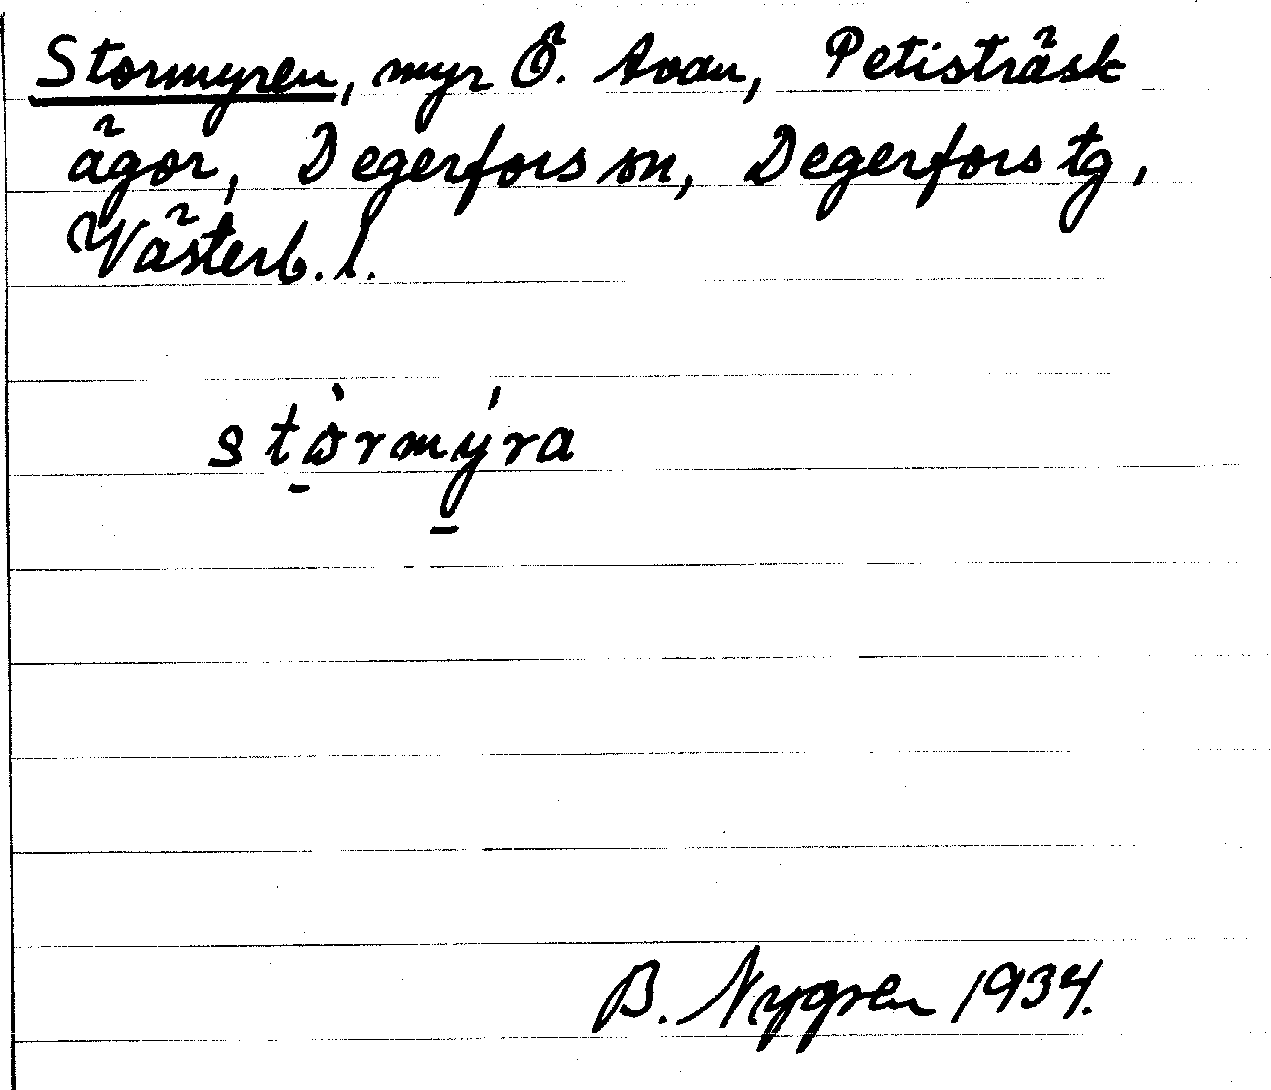 Stormyren, myr Ö. Avan, Petisträsk
ägor, Degerfors sn, Degerfors tg,
Västerb. l.
stòrmýra
B. Nygren 1934.